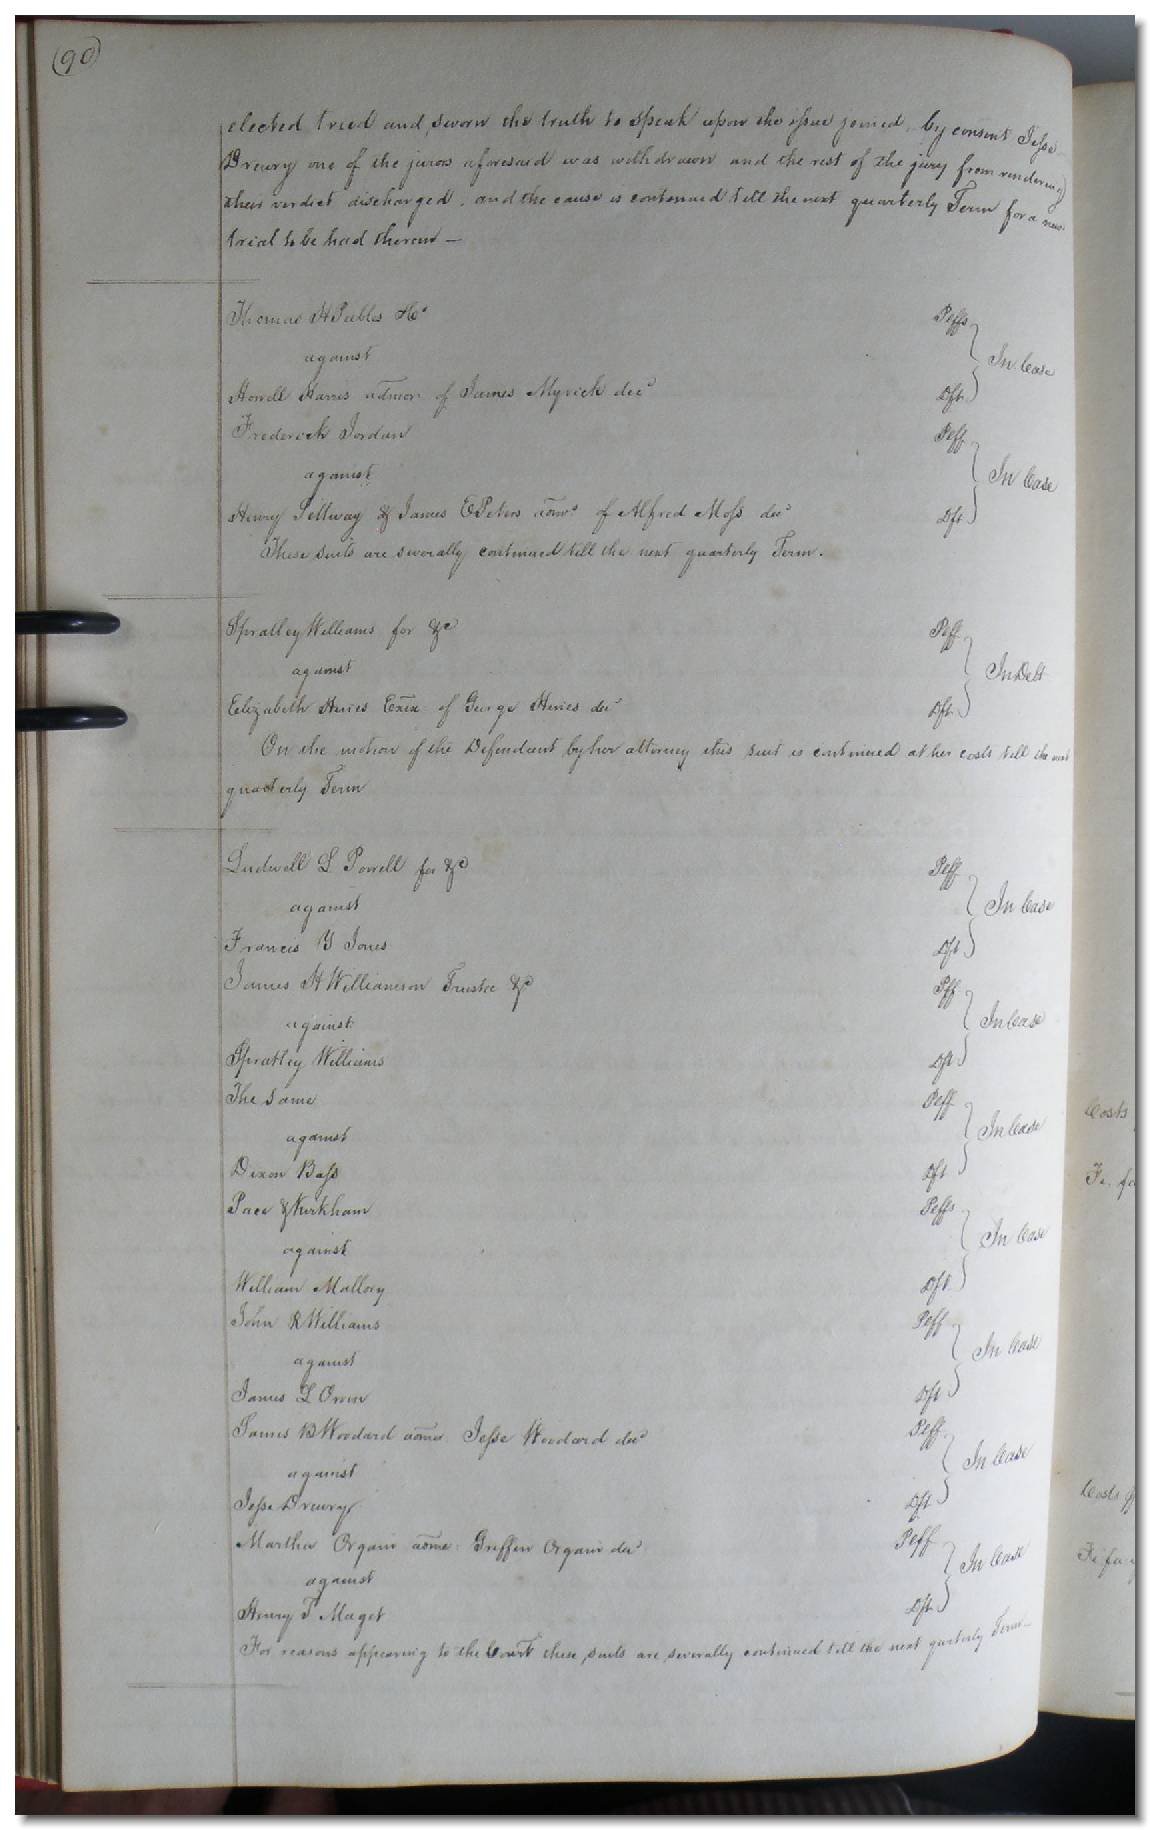 (90)
elected tried and sworn the truth to speak upon the issue joined by consent Jesse
Drewry one of the jurors aforesaid was withdrawn and the rest of the jury from rendering
their verdict discharged. and the cause is continued till the next quarterly Term for a new
trial to be had therein —
Thomas H Peebles &c Peffs
against In Case
Howell Harris admor. of James Myrick decd Dft
Frederick Jordan Peff
against In Case
Henry Pillway & James E Peters admrs of Alfred Moss decd Dft
These suits are severally continued till the next quarterly Term.
Spratley Williams for &c Peff
against In Debt
Elizabeth Hines Exix of George Hines decd Dft
On the motion of the Defendant by her attorney this suit is continued at her costs till the next
quarterly Term
Ludwell L Powell for &c Peff
against In Case
Francis Y Jones Dft
James H Williamson Trustee &c Pff
against In Case
Spratley Williams Dft
The Same Peff
against In Case
Dixon Bass Dft
Pace & Kirkham Peffs
against In Case
William Mallory Dft
John R Williams Peff
against In Case
James L Orrin Dft
James B Woodard admr Jesse Woodard decd Peff
against In Case
Jesse Drewry Dft
Martha Organ admx Griffin Organ decd Peff
against In Case
Henry T Maget Dft
For reasons appearing to the Court these suits are severally continued till the next quarterly Term —
Costs
Costs